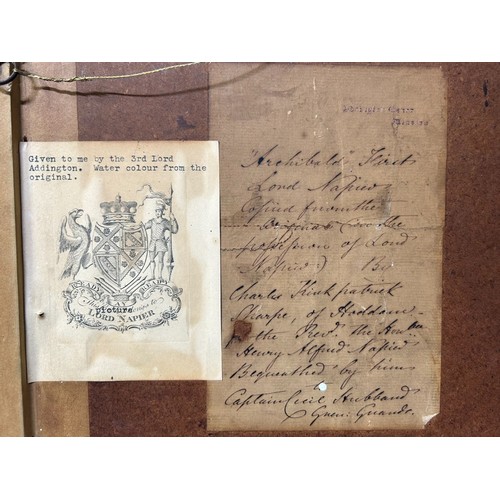 Given to me by the 3rd Lord
Addington. Water colour from the
original.
READY AYE READY
This picture belongs to
LORD NAPIER
"Archibald" First
Lord Napier
Copied from the
Original (in the
possession of Lord
Napier) By
Charles Kirkpatrick
Sharpe, of Hoddom
the Revd. the Honble
Henry Alfred Napier
Bequeathed by him
Captain Cecil Hubbard
Gren: Guards.